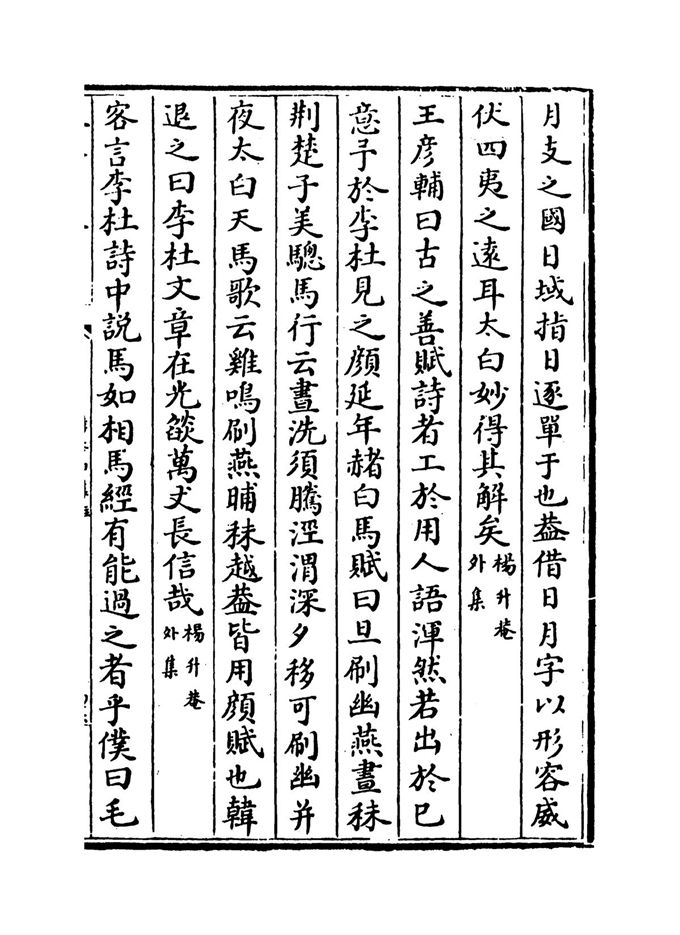 月支之國日域指日逐單于也葢借日月字以形容威
伏四夷之遠耳太白妙得其解矣楊升菴外集
王彦輔曰古之善賦詩者工於用人語渾然若出於已
意予於李杜見之顔延年赭白馬賦曰旦刷幽燕晝秣
荆楚子美驄馬行云晝洗須騰涇渭深夕移可刷幽并
夜太白天馬歌云雞鳴刷燕晡秣越葢皆用顔賦也韓
退之曰李杜文章在光燄萬丈長信哉楊升菴外集
客言李杜詩中説馬如相馬經有能過之者乎僕曰毛